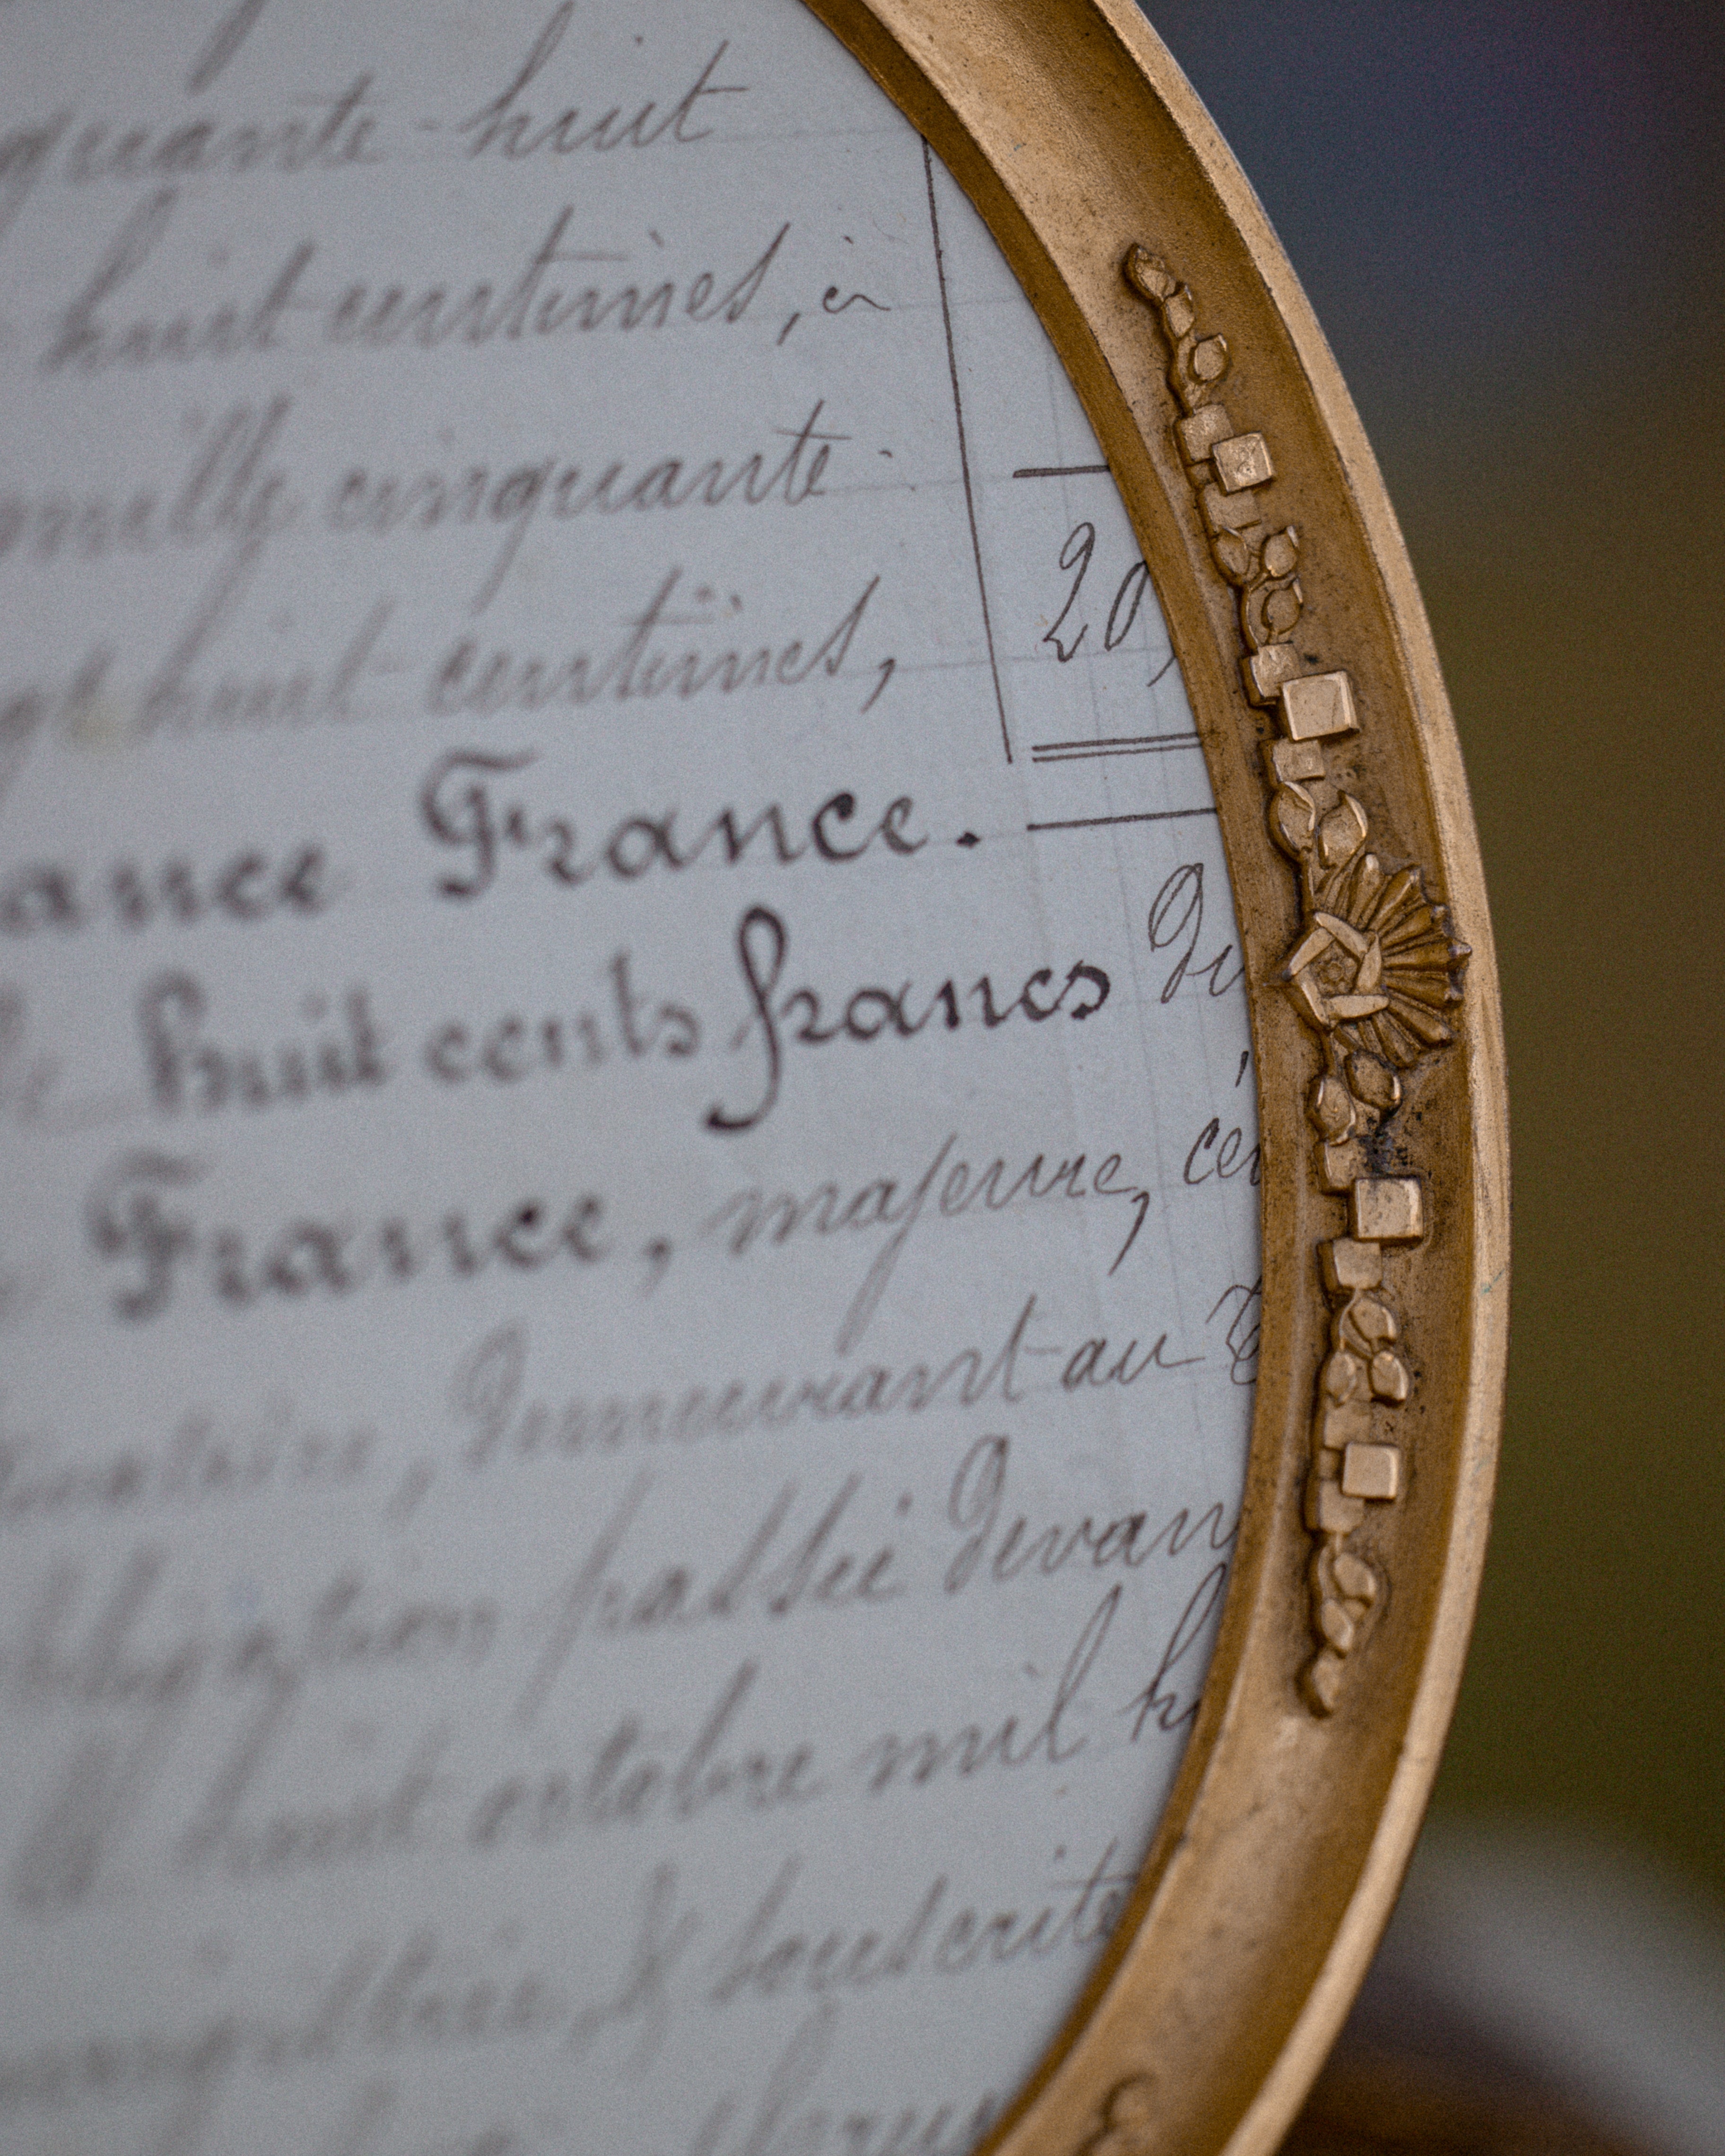 quante-huit
huit centimes, à
mille cinquante
huit centimes,
20,
ance France.
huit cents francs du
France, majeure, cé
demeurant au
obligation passée devan
huit octobre mil h
& souscrite